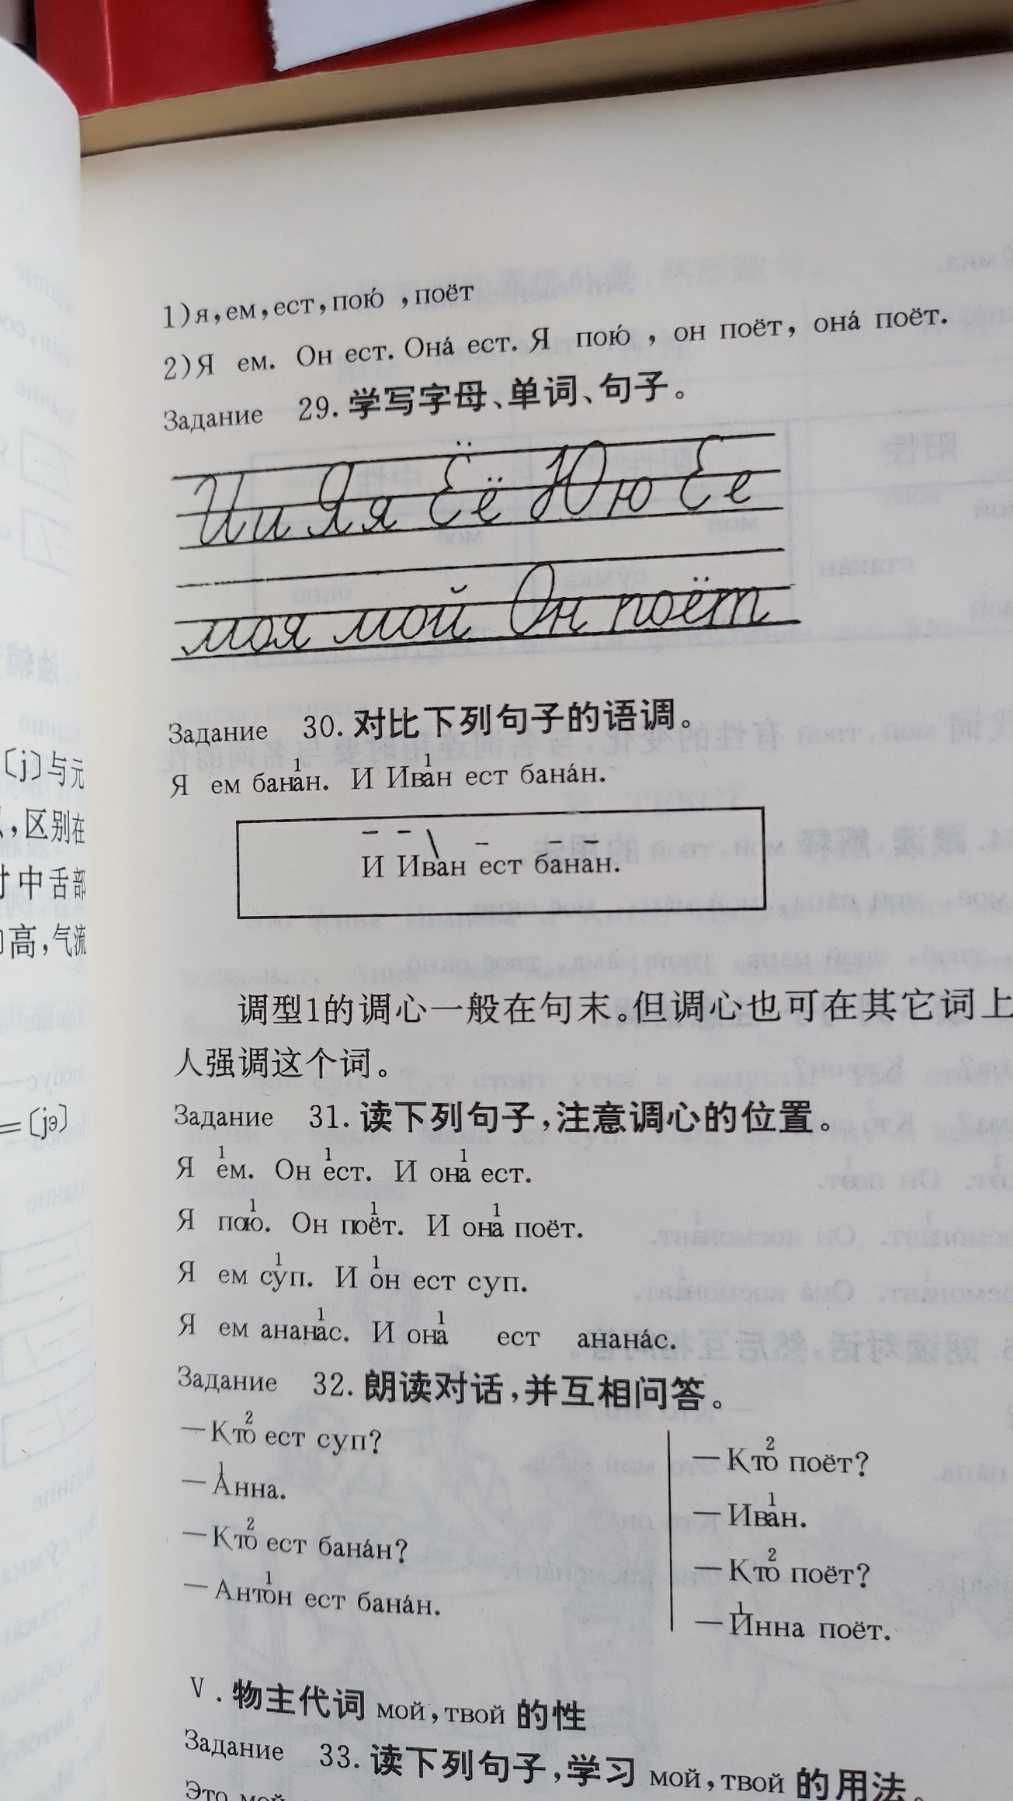 1)я,ем,ест,пою́ ,поёт
2)Я ем. Он ест. Она́ ест. Я пою́ , он поёт, она́ поёт.
Задание 29.学写字母、单词、句子。
Ии Яя Ёё Юю Ее
моя мой Он поёт
Задание 30.对比下列句子的语调。
Я ем бана́н. И Ива́н ест бана́н.
И Иван ест банан.
调型1的调心一般在句末。但调心也可在其它词上
人强调这个词。
Задание 31.读下列句子,注意调心的位置。
Я ем. Он ест. И она ест.
Я пою. Он поёт. И она поёт.
Я ем суп. И он ест суп.
Я ем ананас. И она ест анана́с.
Задание 32.朗读对话,并互相问答。
—Кто ест суп?
—Анна.
—Кто ест бана́н?
—Антон ест бана́н.
—Кто поёт?
—Иван.
—Кто поёт?
—Инна поёт.
V.物主代词 мой,твой 的性
Задание 33.读下列句子,学习 мой,твой 的用法。
Это мой
〔j〕与元
,区别在
中舌部
高,气流
=〔jə〕